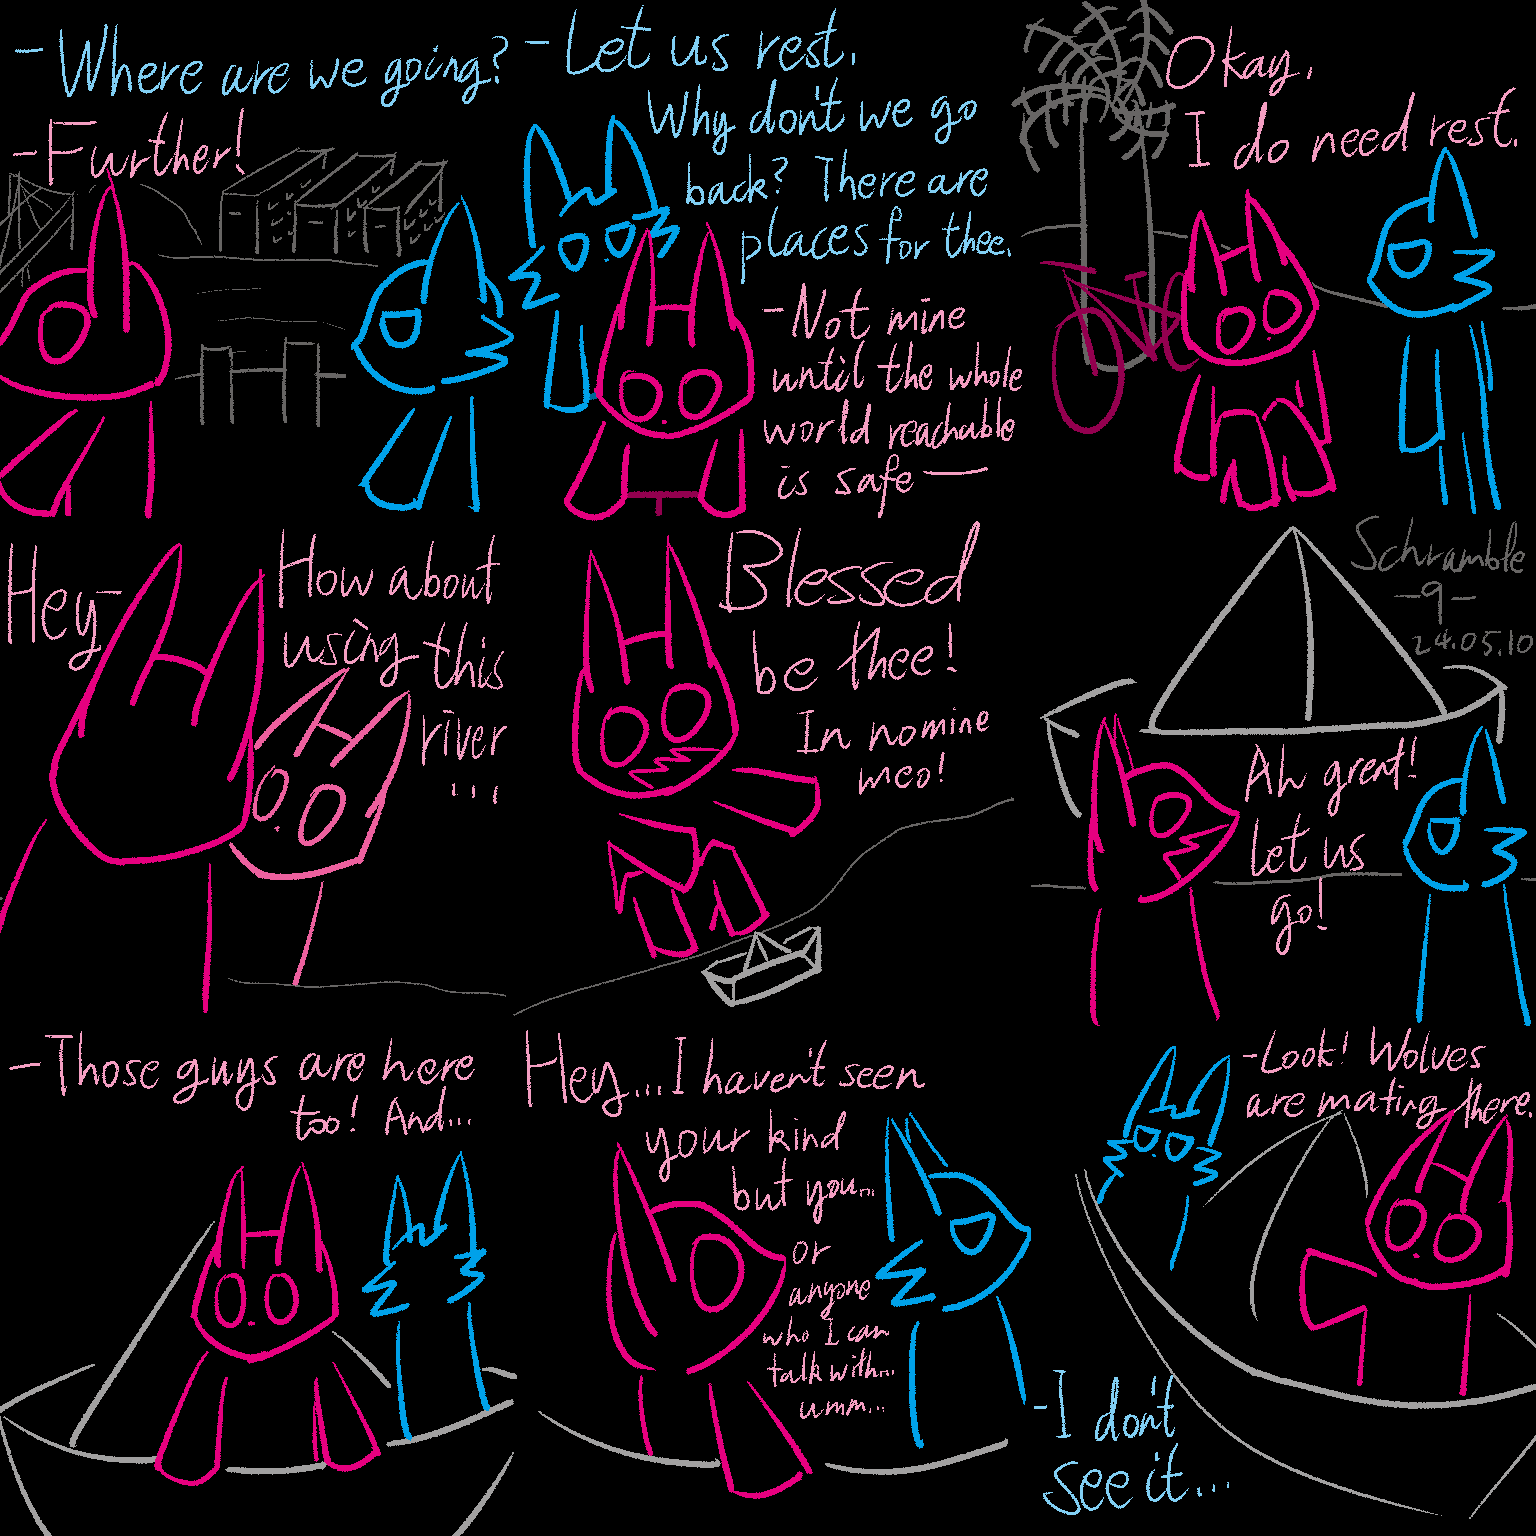 -Where are we going?
-Further!
-Let us rest.
Why don't we go
back? There are
places for thee.
-Not mine
until the whole
world reachable
is safe—
Okay.
I do need rest.
Hey-
How about
using this
river
...
Blessed
be thee!
In nomine
meo!
Schramble
-9-
24.05.10
Ah great!
Let us
go!
-Those guys are here
too! And...
Hey...I haven't seen
your kind
but you...
or
anyone
who I can
talk with...
umm...
-Look! Wolves
are mating there.
-I don't
see it...